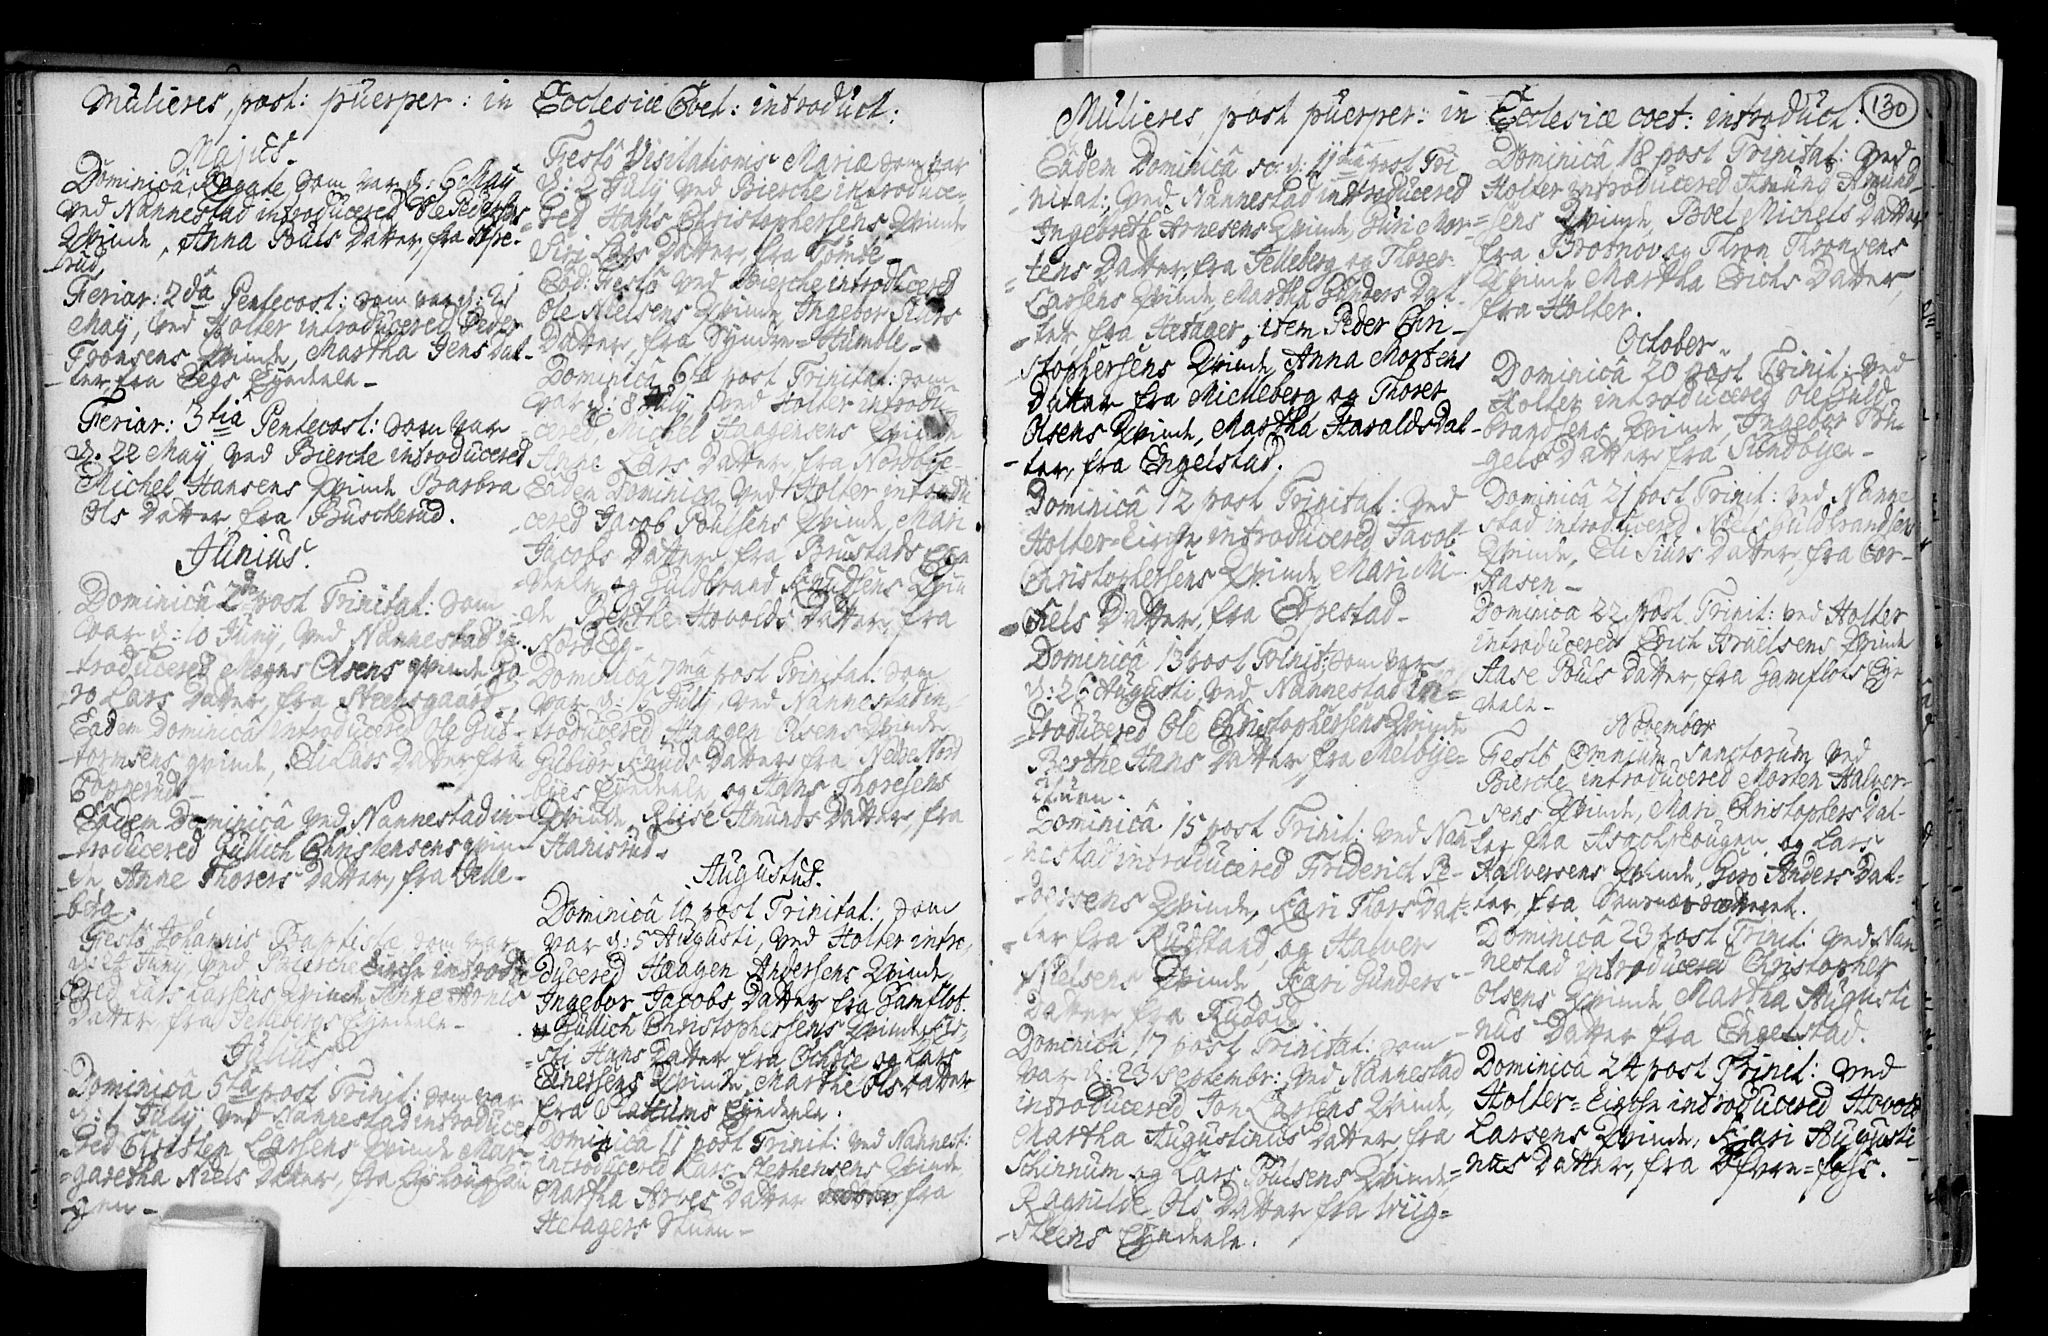 Mulieres, post: puerper: in Ecclesiæ Coet: introduct:
Majus.
Dominicâ Rogate som var d: 6 Maij
ved Nannestad introducered Ole Peders
Qvinde, Anna Pouls Datter, fra
rud,
Feriar: 2dâ Pentecost: som var d: 21
Maij, ved Holter introducered Peder
Tronsens Qvinde, Martha Jens Dat-
ter, fra Eegs Eyedeele-
Feriar: 3tiâ Pentecost: som var
d. 22 Maij ved Bierche introducered
Michel Hansens Qvinde Barbra
Ols Datter, fra Buscherud.
Junius.
Dominicâ 2dâ post Trinitat: som
var d: 10 Junij, ved Nannestad in-
troducered Mogns Olsens qvinde
Lars Datter, fra Steensgaard
Eadem Dominicâ introducered Ole Gut-
tormsens qvinde, Eli Lars Datter fra
Popperud-
Eadem Dominicâ ved Nannestad in-
troducered Gullich Christensens qvin-
de, Anne Thorers Datter, fra Jelle-
berg.
Festô Johannis Baptistæ som var
d: 24 Junij, ved Bierche Kirche introdu
cered Lars Larsens Qvinde Anne
Datter, fra Jellebergs Eyedeele-
Julius.
Dominicâ 5tâ post Trinit: som var
d: 1 Julij, ved Nannestad introduce-
red Christen Larsens Qvinde Mar-
garetha Niels Datter, fra
gen-
Festô Visitationis Mariæ som var
d: 2 Julij ved Bierche introduce-
red Hans Christophersens Qvinde
Siri Lars Datter, fra Tømte-
Eod: Festô ved Bierche introducered
Ole Nielsens Qvinde Ingebor Siurs
Datter, fra Syndre-Humble-
Dominicâ 6tâ post Trinitat: som
var d: 8 Julij, ved Holter introdu-
cered, Michel Haagensens Qvinde
Anne Lars Datter fra Nordbye-
Eadem Dominicâ, ved Holter introdu
cered Jacob Poulsens Qvinde, Mari
Jacobs Datter, fra Brustads Eye
deele, og Guldbrand Knudsens Qvin
de Berthe Hovolds Datter, fra
Nordbye-
Dominicâ 7mâ post Trinitat: som
var d: 15 Julij, ved Nannestad in-
troducered Haagen Olsens Qvinde
Gubiør Knuds Datter fra Nedre Nord
byes Eyedeele, og Hans Thoresens
Qvinde, Reise Amunds Datter, fra
Hamerud-
Augustus.
Dominicâ 10 post Trinitat: som
var d: 5 Augusti, ved Holter intro-
ducered Haagen Andersens Qvinde,
Ingebor Jacobs Datter fra Gamflot.
og Gullich Christophersens Qvinde, Kir-
sti Hans Datter fra og Lars
Einersens Qvinde, Marthe Ols Datter
fra Plattums Eyedeele.
Dominicâ 11 post Trinit: ved Nannest:
introducered Lars Stephensens Qvinde,
Martha Arves Datter fra
Hetagers Stuen-
130
Mulieres, post puerper: in Ecclesiæ coet: introduct:
Eâdem Dominicâ sc: d: 11mâ post Tri
nitat: ved Nannestad introducered
Ingebreth Arnesens Qvinde, Guri Mor-
tens Datter, fra Jelleberg og Thorer
Larsens Qvinde, Martha Gunders Dat-
ter, fra Hetager, item Peder Chri-
stophersens Qvinde, Anna Mortens
Datter fra Michelberg og Thorer
Olsens Qvinde, Martha Haralds Dat-
ter, fra Engelstad.
Dominicâ 12 post Trinitat: ved
Holter-Kirche introducered Jacob
Christophersens Qvinde, Mari Mi-
chels Datter, fra Espestad-
Dominicâ 13 post Trinit: som var
d: 26 Augusti, ved Nannestad in-
troducered Ole Christophersens Qvinde
Berthe Hans Datter, fra Melbye-
stuen-
Dominicâ 15 post Trinit: ved Nan-
nestad introducered Friderich Pe-
dersens Qvinde, Kari Thors Dat-
ter fra Rudstand, og Halver
Nielsens Qvinde, Kari Gunders-
Datter fra
Dominicâ 17 post Trinitat: som
var d: 23 Septembr: ved Nannestad
introducered Jon Larsens Qvinde,
Martha Augustinus Datter, fra
Schinnum og Lars Poulsens Qvinde,
Ragnilde Ols Datter fra Wiig-
steens Eyedeele.
Dominicâ 18 post Trinitat: ved
Holter introducered Amund Amund-
sens Qvinde, Boel Michels Datter
fra Brotnov og Thron Thronsens
Qvinde Martha Erichs Datter,
fra Holter.
October
Dominicâ 20 post Trinit: ved
Holter introducered Ole Guld-
brandsens Qvinde Ingebor En-
gels Datter fra Sundbyen-
Dominicâ 21 post Trinit: ved Nanne
stad introducered Niels Guldbrandsens
Qvinde, Eli Siurs Datter, fra
Aasen-
Dominicâ 22 post Trinit: ved Holter
introducered Erich Iraelsens Qvinde
Aase Pouls Datter, fra Gamflots Eye
deele-
November
Festô Omnium Sanctorum, ved
Bierche introducered Morten Halver-
sens Qvinde, Mari Christophers Dat-
ter fra og Lars
Halversens Qvinde, Goro Anders Dat-
ter fra
Dominicâ 23 post Trinit: ved Nan
nestad introducered Christopher
Olsens Qvinde Martha Augusti
nus Datter fra Engelstad.
Dominicâ 24 post Trinit: ved
Holter-Kirche introducered Hovold
Larsens Qvinde, Kari Augusti
nus Datter, fra Øfvre-